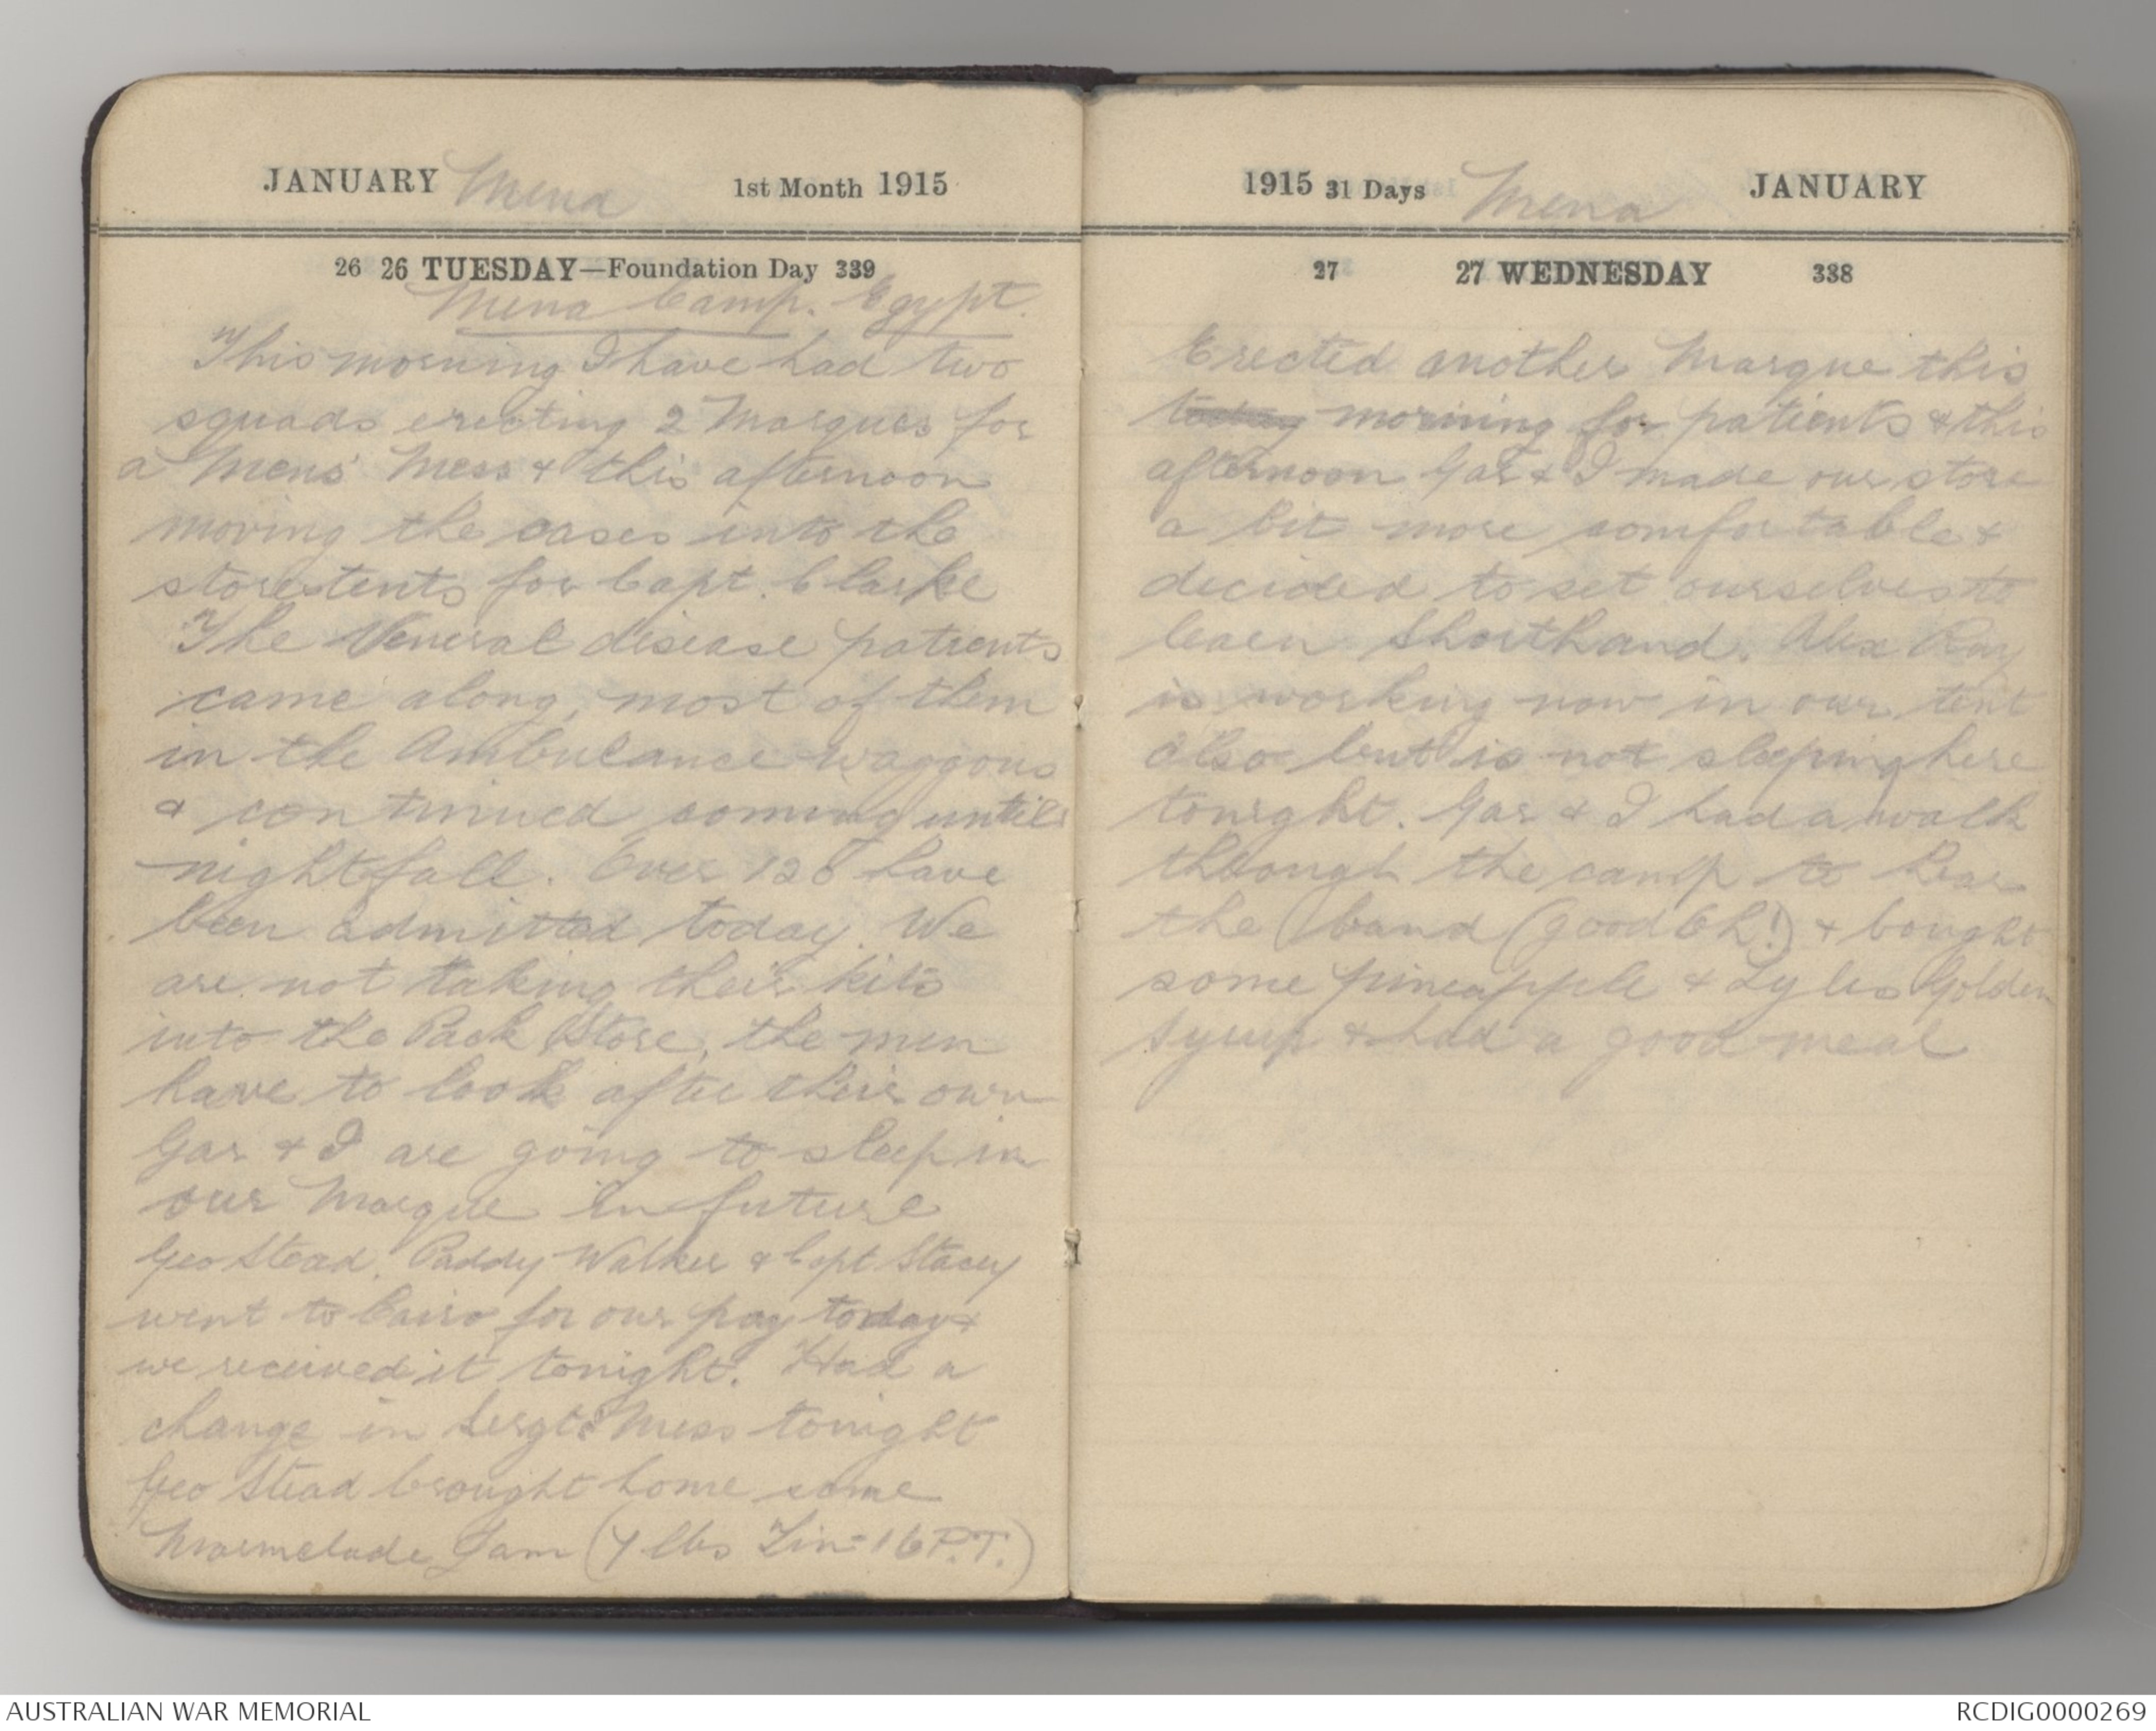 JANUARY Mena 1st Month 1915
26 26 TUESDAY—Foundation Day 339
Mena Camp. Egypt.
This morning I have had two
squads erecting 2 Marques for
a Mens' Mess & this afternoon
moving the cases into the
store tents for Capt. Clarke
The Veneral disease patients
came along, most of them
in the Ambulance waggons
& continued coming until
nightfall. Over 120 have
been admitted today. We
are not taking their kits
into the Pack Store, the men
have to look after their own
Gar & I are going to sleep in
our Marque in future
Geo Stead, Paddy Walker & Capt Stacy
went to Cairo for our pay today &
we received it tonight. Had a
change in Sergts Mess tonight
Geo Stead brought home some
Marmelade Jam (7 lbs Tin = 16 P.T.)
1915 31 Days Mena JANUARY
27 27 WEDNESDAY 338
Erected another Marque this
today morning for patients & this
afternoon Gar & I made our store
a bit more comfortable &
decided to set ourselves to
learn Shorthand. Alex Ray
is working now in our tent
also but is not sleeping here
tonight. Gar & I had a walk
through the camp to hear
the band (good Eh!) & bought
some pineapple & Lyles Golden
Syrup & had a good meal
AUSTRALIAN WAR MEMORIAL
RCDIG0000269